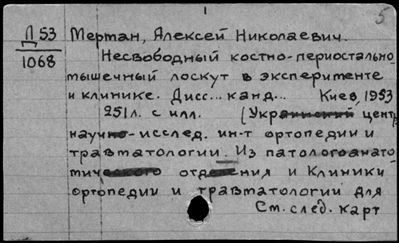 5
Д 53 Мертан, Алексей Николаевич.
1068 Несвободный костно-периостально-
мышечный лоскут в эксперименте
и клинике. Дисс... канд... Киев, 1953
251 л. с илл. (Украинский центр
научно-исслед. ин-т ортопедии и
травматологии. Из патологоанато-
мического отделения и Клиники
ортопедии и травматологии для
См. след. карт